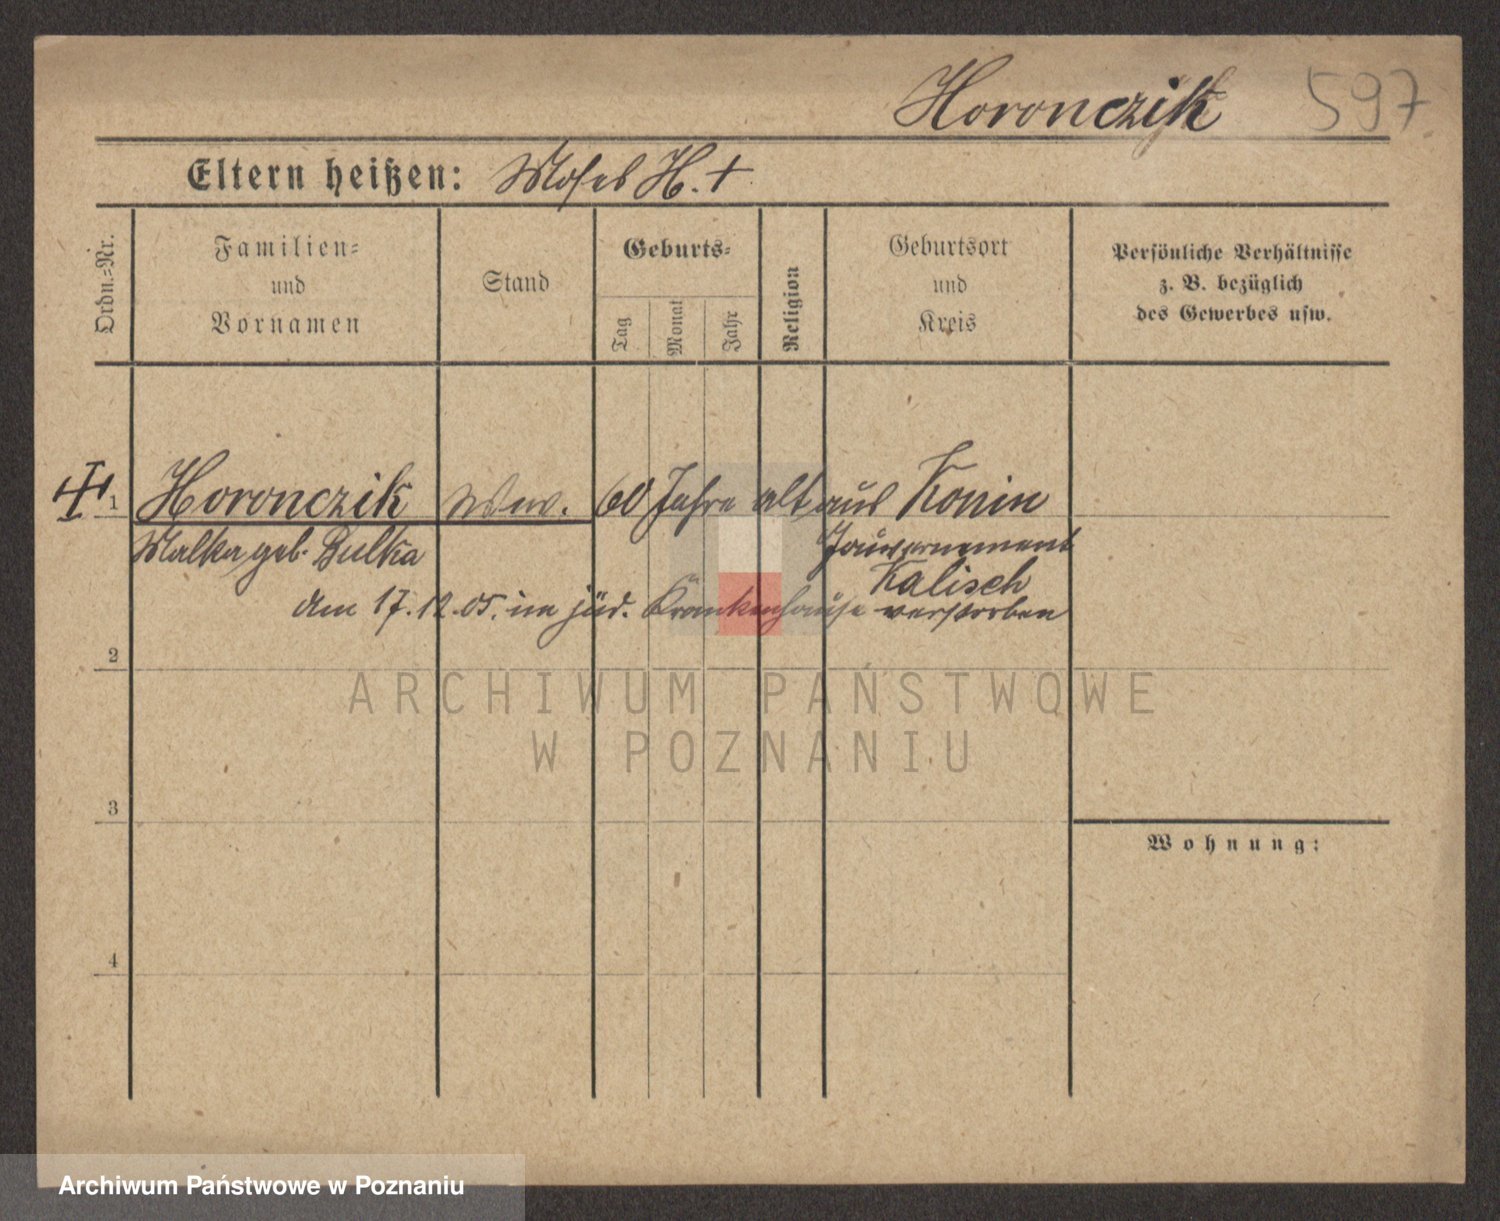 Horonczik 597
Eltern heißen: Moses H. +
Ordn.=Nr.
Familien=
und
Vornamen
Stand
Geburts=
Tag
Monat
Jahr
Religion
Geburtsort
und
Kreis
Persönliche Verhältnisse
z. B. bezüglich
des Gewerbes usw.
1 Horonczik Ww. 60 Jahre alt aus Konin
Malka geb. Bulka Gouvernement
Kalisch
Am 17.12.05. im jüd. Krankenhause verstorben
2
ARCHIWUM PAŃSTWOWE
W POZNANIU
3
Wohnung:
4
Archiwum Państwowe w Poznaniu